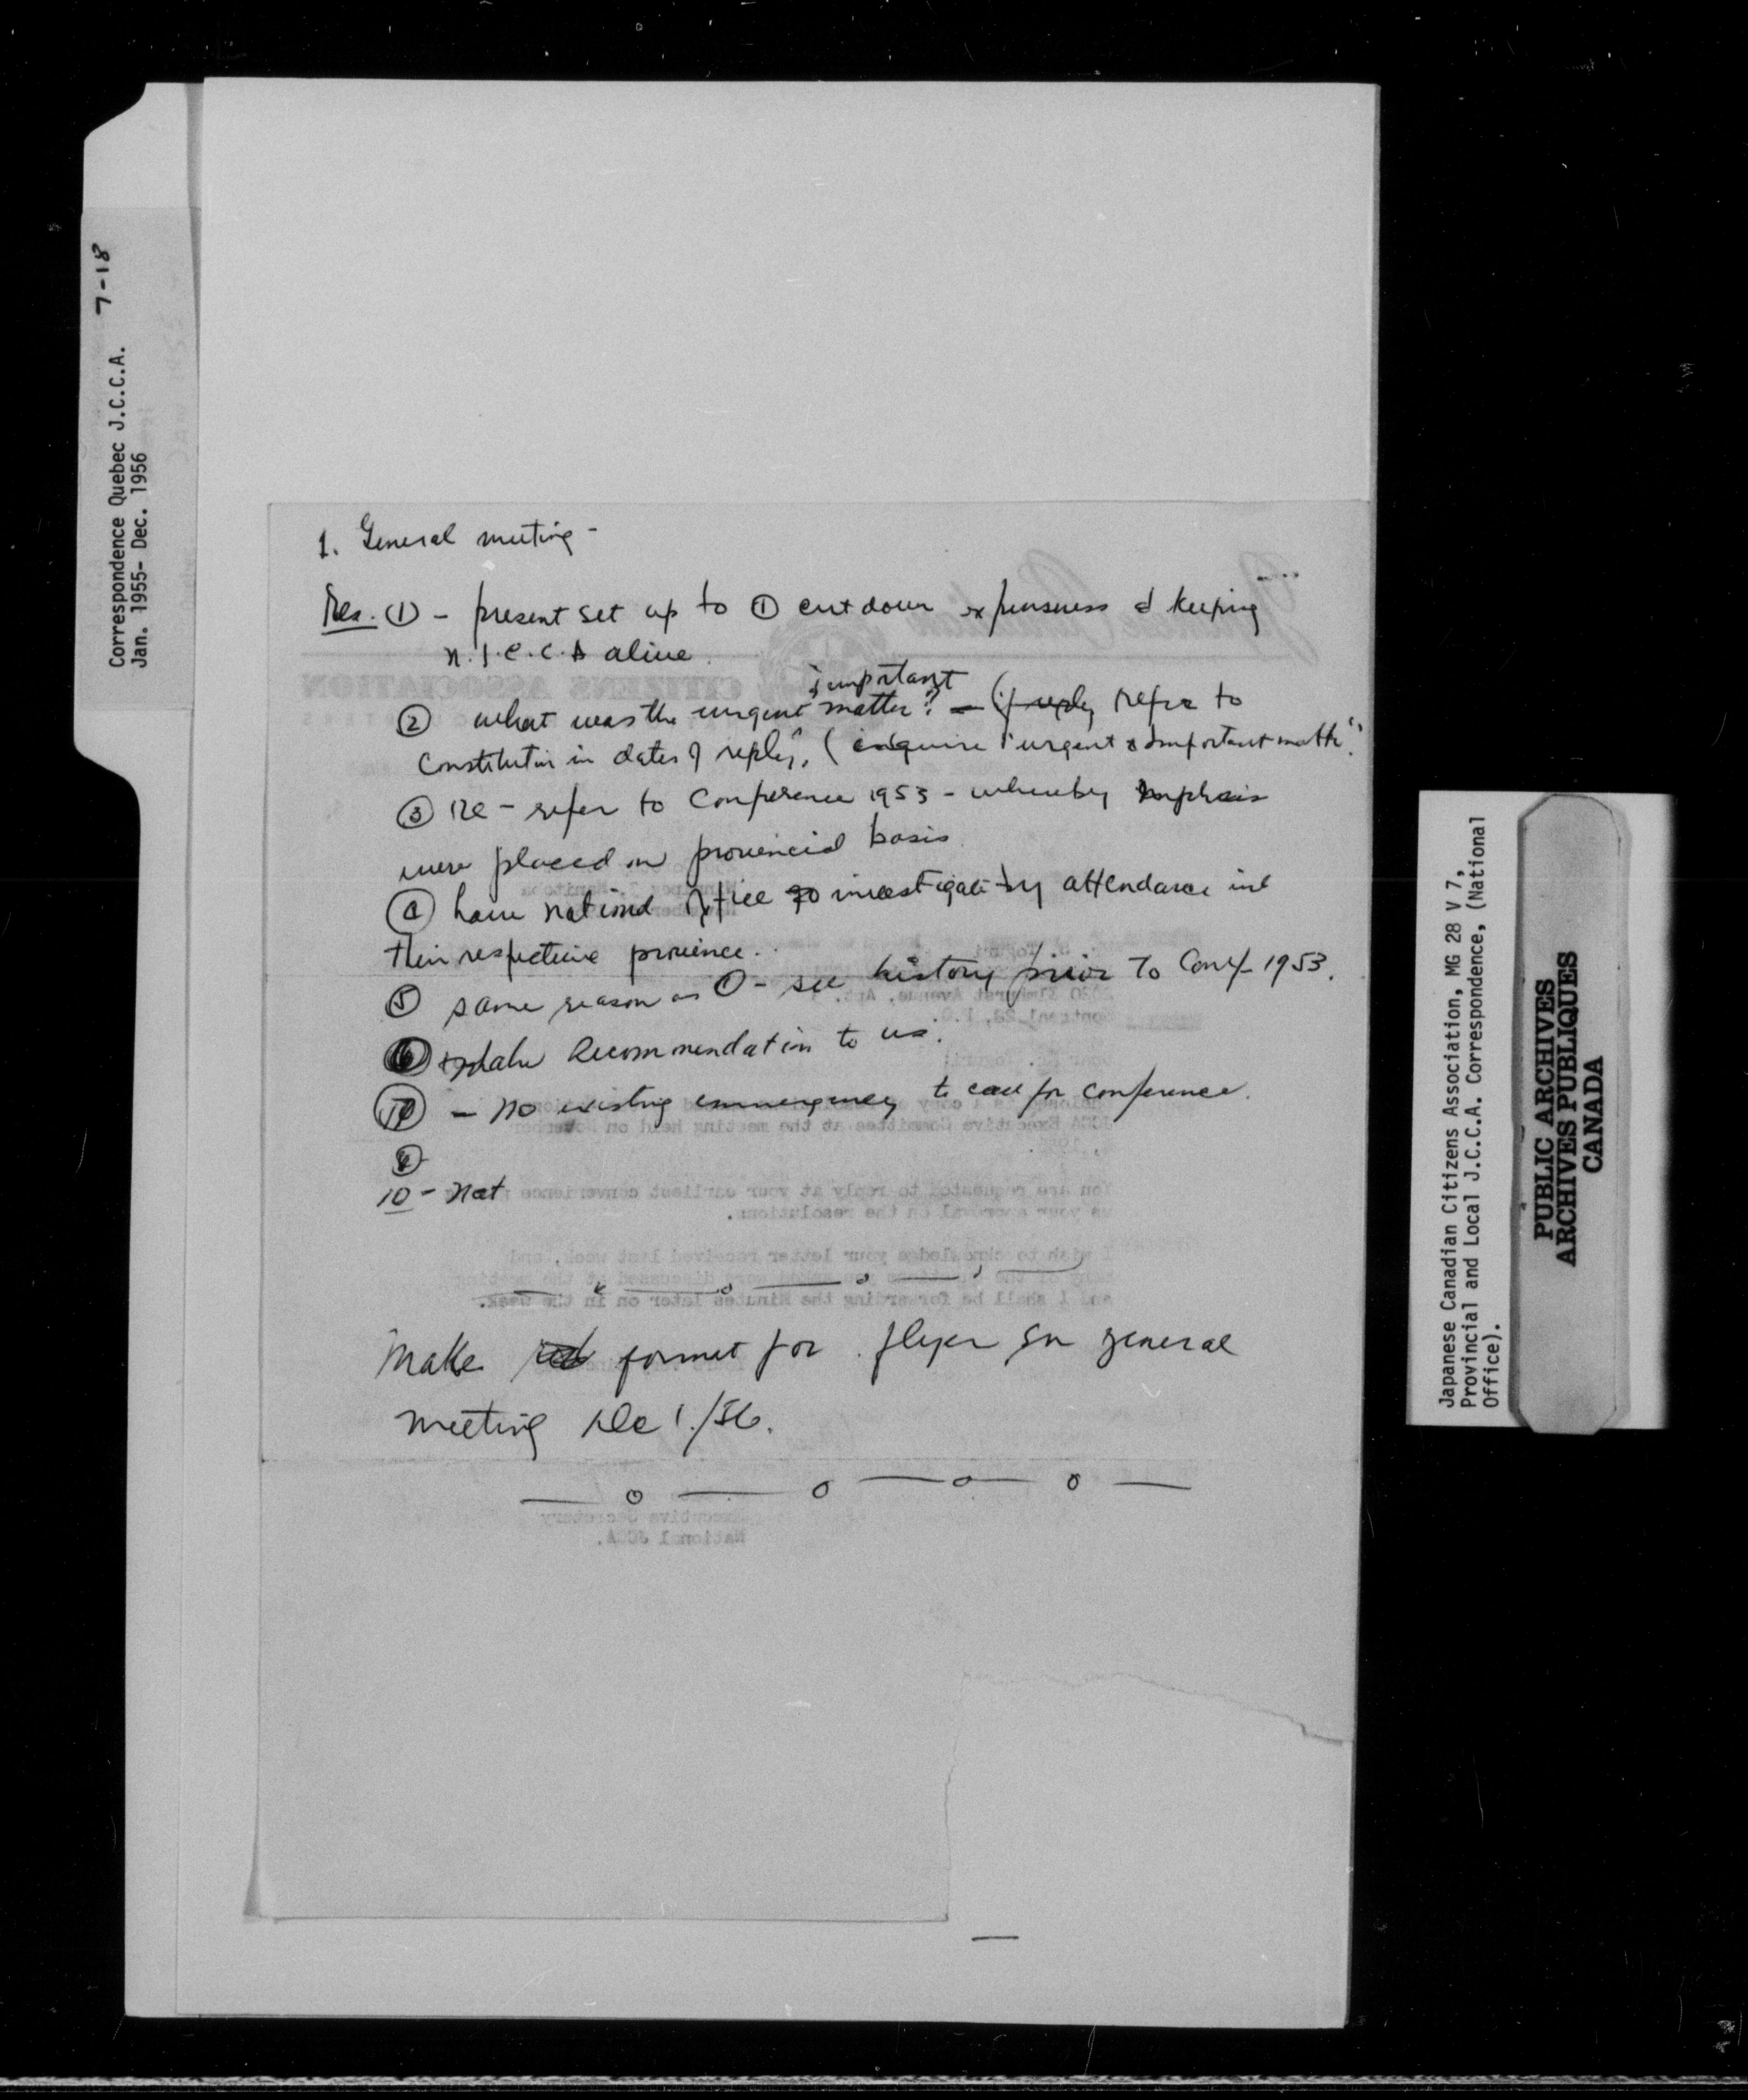 7-18
Correspondence Quebec J.C.C.A.
Jan. 1955- Dec. 1956
1. General meeting -
Res. ① - present set up to ① cut down expensness & keeping
N.J.C.C.A alive.
important
② what was the urgent matter? - (if reply refer to
Constitution in dates of reply. ( enquire "urgent & important matter".
③ Re - refer to Conference 1953 - whereby emphasis
were placed on provencial basis
④ have national office to investigate by attendance in
their respective provience.
⑤ same reason as ① - see history prior to Conf 1953.
⑥ make Recommendation to us.
- no existing emmergency to call for conference.
10 - Not
Make format for flyer on general
meeting Dec 1./56.
Japanese Canadian Citizens Association, MG 28 V 7,
Provincial and Local J.C.C.A. Correspondence, (National
Office).
PUBLIC ARCHIVES
ARCHIVES PUBLIQUES
CANADA